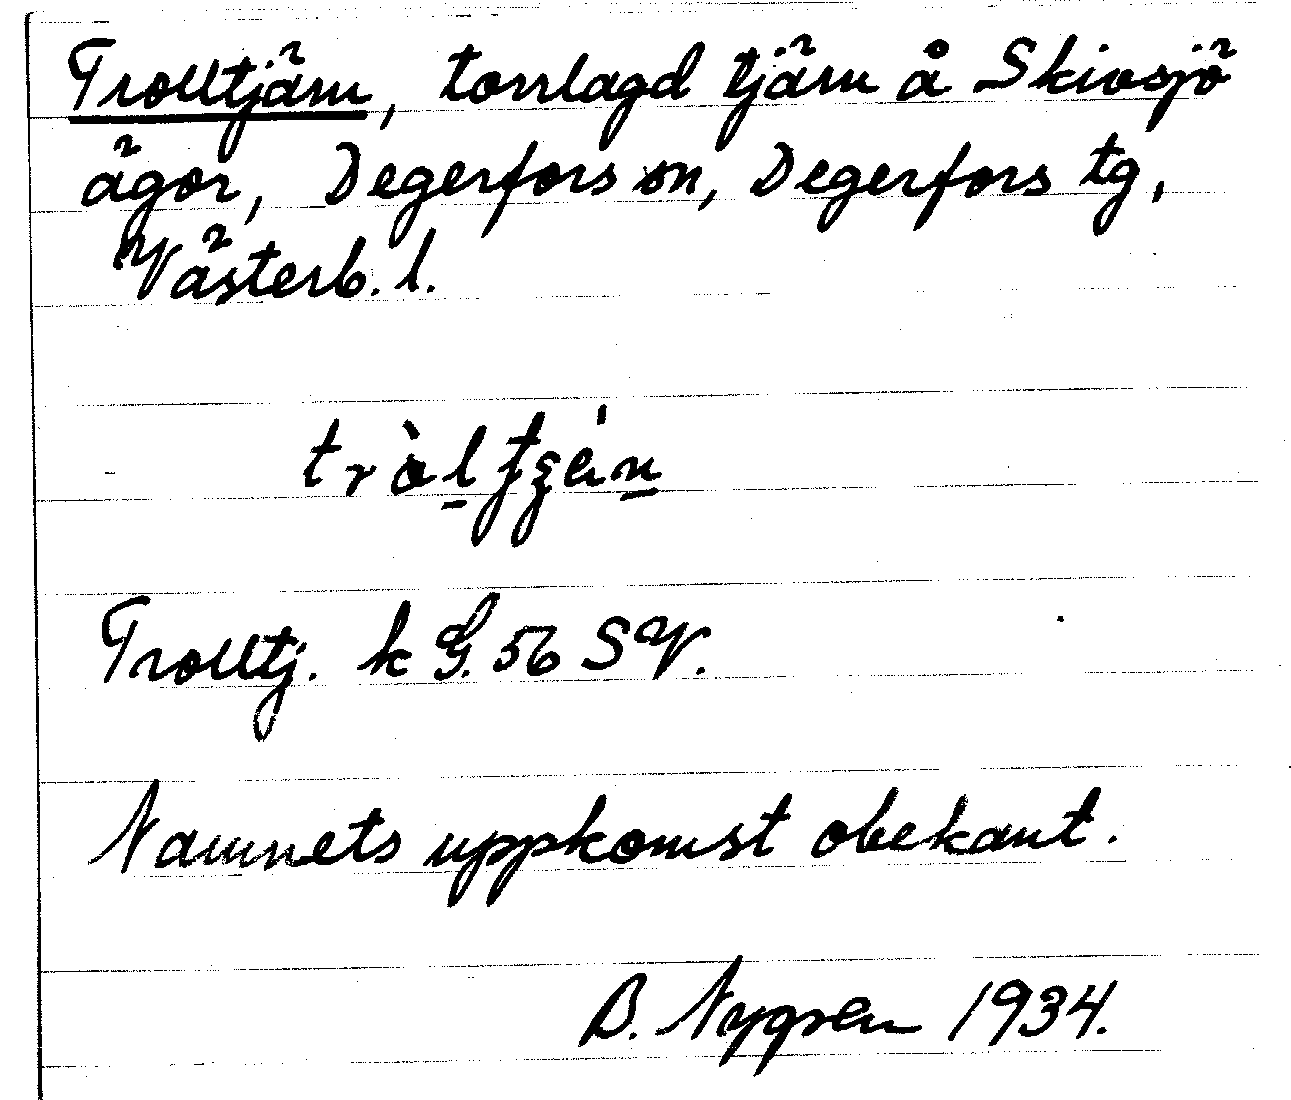 Trolltjärn, torrlagd tjärn å Skivsjö
ägor, Degerfors sn, Degerfors tg,
Västerb. l.
Trolltj. k G. 56 SV.
Namnets uppkomst obekant.
B. Nygren 1934.